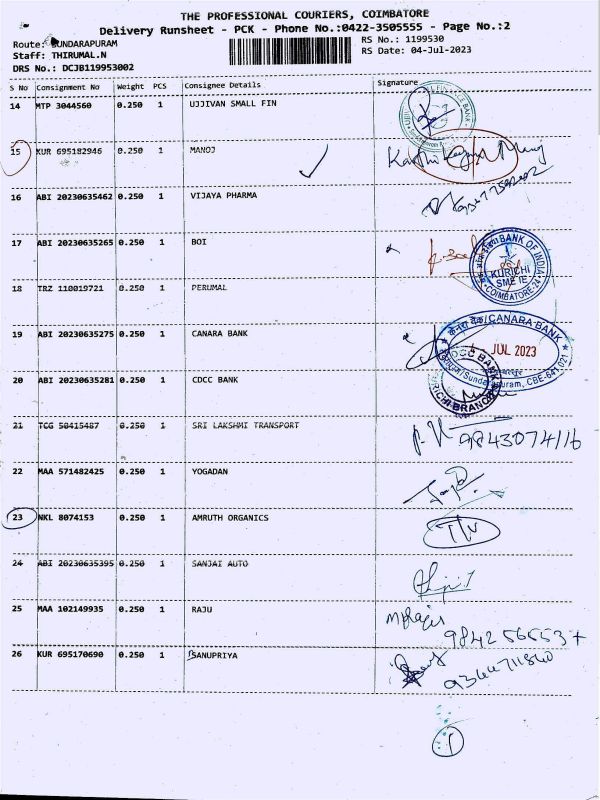 THE PROFESSIONAL COURIERS, COIMBATORE
Delivery Runsheet - PCK - Phone No.:0422-3505555 - Page No.:2
Route: SUNDARAPURAM RS No.: 1199530
Staff: THIRUMAL.N RS Date: 04-Jul-2023
DRS No.: DCJB119953002
S No Consignment No Weight PCS Consignee Details Signature
14 MTP 3044560 0.250 1 UJJIVAN SMALL FIN
15 KUR 695182946 0.250 1 MANOJ
16 ABI 20230635462 0.250 1 VIJAYA PHARMA
17 ABI 20230635265 0.250 1 BOI
BANK OF INDIA
KURICHI
SME IE
COIMBATORE-24
18 TRZ 110019721 0.250 1 PERUMAL
19 ABI 20230635275 0.250 1 CANARA BANK
केनरा बैंक/CANARA BANK
JUL 2023
Sundarapuram, CBE-641 021
20 ABI 20230635281 0.250 1 CDCC BANK
CDCC BANK
KURICHI BRANCH
21 TCG 50415487 0.250 1 SRI LAKSHMI TRANSPORT
9843074116
22 MAA 571482425 0.250 1 YOGADAN
23 NKL 8074153 0.250 1 AMRUTH ORGANICS
24 ABI 20230635395 0.250 1 SANJAI AUTO
25 MAA 102149935 0.250 1 RAJU
26 KUR 695170690 0.250 1 SANUPRIYA
1